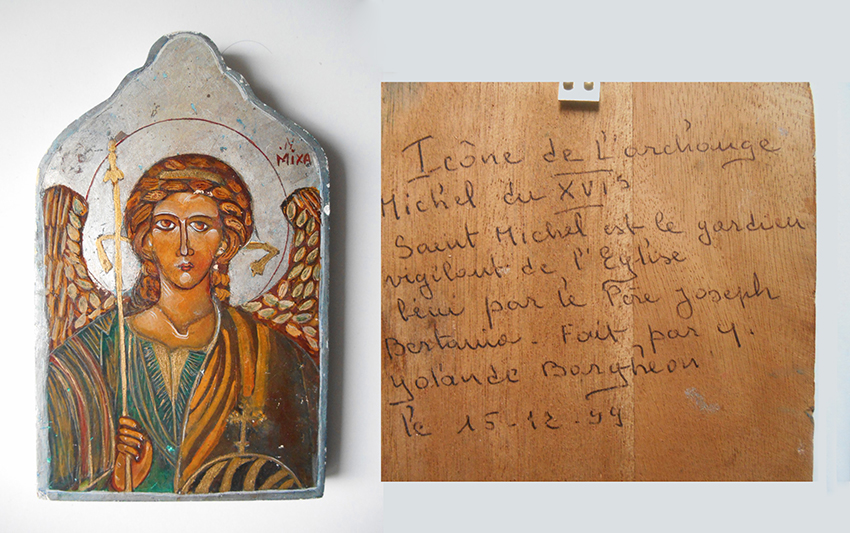 .Ν
MIXA
Icône de L'archange
Michel du XVIs
Saint Michel est le gardien
vigilant de l'Eglise
béni par le Père Joseph
Bertania. Fait par Y.
Yolande Barghéon
le 15-12-99